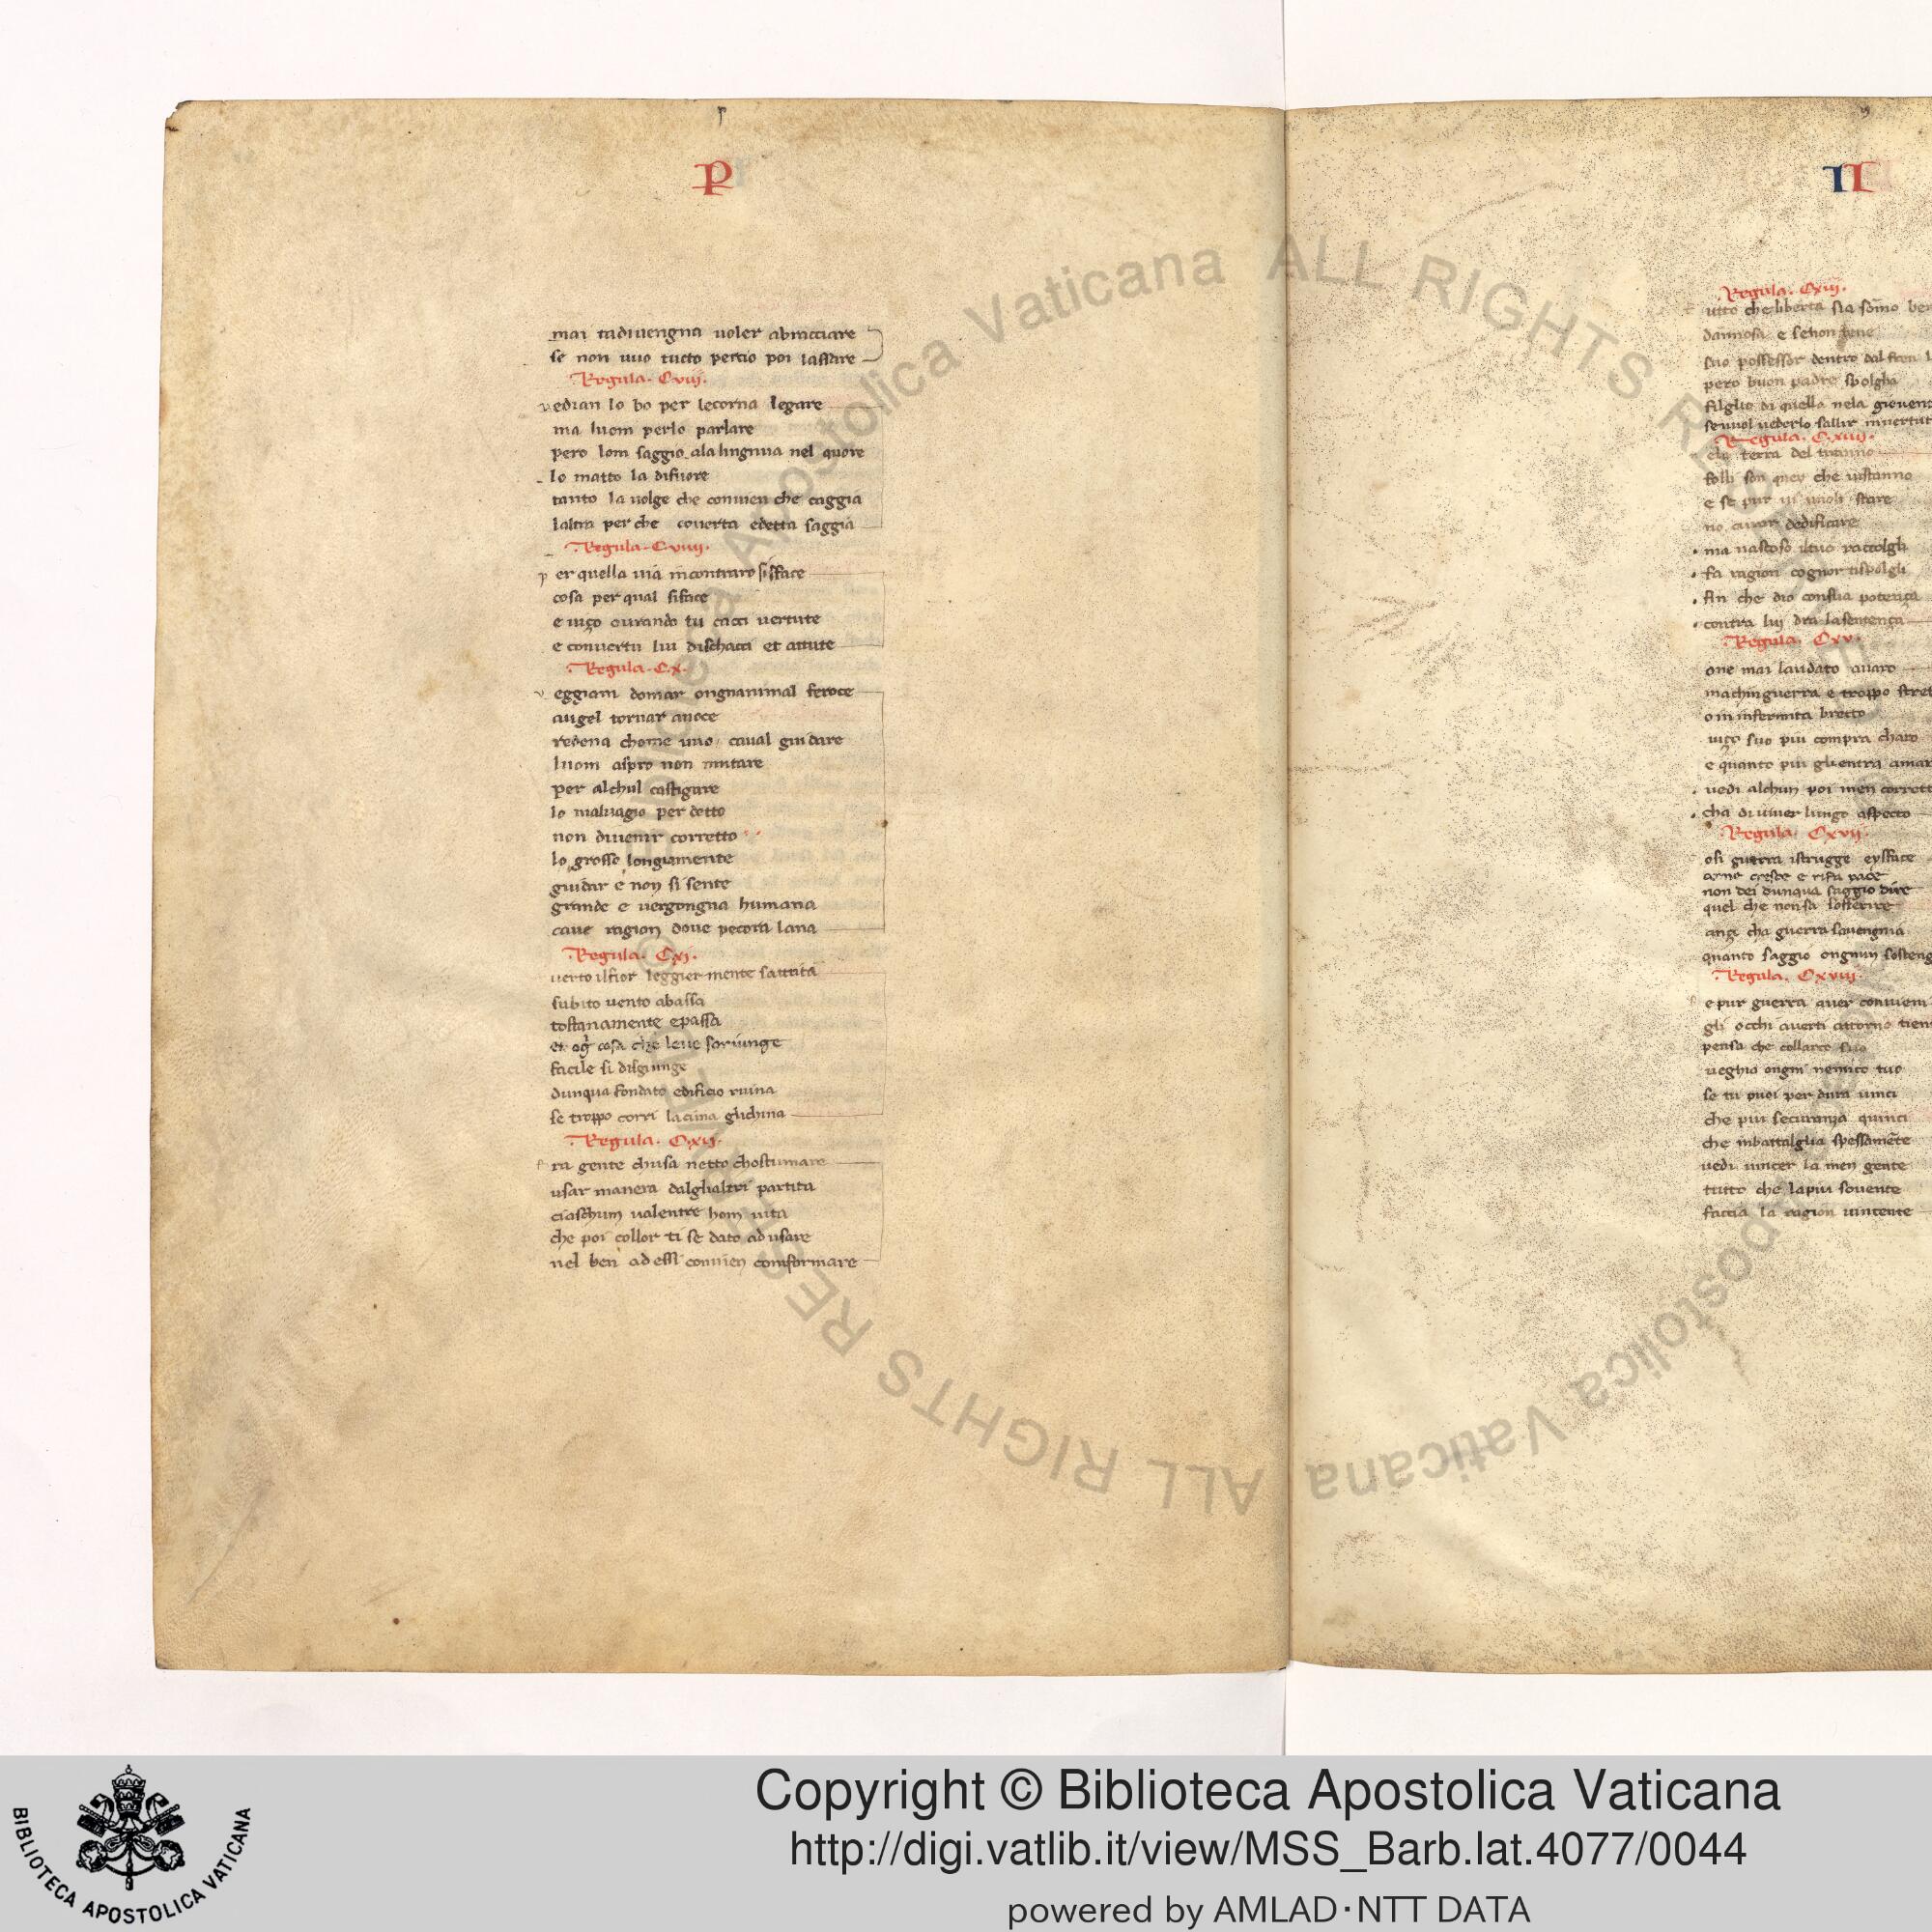 P
mai tadiuengna uoler abracciare
se non uuo tucto percio poi lassare
Regula. Cviij.
vedian lo bo per lecorna legare
ma luom perlo parlare
pero lom saggio ala lingnua nel quore
lo matto la difuore
tanto la uolge che conuien che caggia
laltra perche couerta edetta saggia
Regula. Cviiij.
per quella uia incontraro sisface
cosa per qual siface
e uiço curando tu cacci uertute
e conuertu lui dischacci et attute
Regula. C.x.
veggiam domar ongnanimal feroce
augel tornar auoce
redena chome uno caual guidare
luom aspro non mutare
per alchul castigare
lo maluagio per detto
non diuenir corretto
lo grosso longiamente
guidar e non si sente
grande e uergongna humana
caue ragion doue pecora lana
Regula. Cxi.
uerto ilfior leggier mente
subito uento abassa
tostanamente epassa
et og cosa che leue soriunge
facile si disgiunge
dunqua fondato edificio ruina
se troppo corri la cima glichina
Regula. Cxij.
fra gente chusa netto chostumare
usar manera dalghaltri partita
ciaschum ualentre hom uita
che poi collor ti se dato ad usare
nel ben ad essi conuien comformare
II
Regula. Cxiij.
utto che liberta sia somo
dannosa e senon bene
suo possessor dentro dal fren
pero buon padre spolgha
filglio di quella nela
seuuol uederlo sallir
Regula. C.xiiij.
terra del tiranno
folli son quey che uistanno
e se pur ui uuoli stare
no curar dedificare
ma nascoso iltuo raccolgli
fa ragion cognor tispolgli
An che dio consua potença
contra lui dra lasentença
Regula. Cxv.
one mai laudato auaro
machinguerra e troppo
om infermita bretto
uiço suo piu compra charo
e quanto piu glientra
uedi alchun poi men
cha di uiuer lungo aspecto
Regula. Cxvij.
osi guerra istrugge eysface
arme cresce e rifa pace
non dei dunqua saggio dire
quel che nonsa sofferire
ançi cha guerra sauengnia
quanto saggio ongnun
Regula. Cxviij.
e pur guerra auer conuiem
gli occhi auerti attorno
pensa che collarco suo
ueghia ongni nemico tuo
se tu puoi per dura uinci
che piu securanza quinci
che inbattalglia spessamēte
uedi uincer la men gente
tutto che lapiu souente
faccia la ragion uincente
© Biblioteca Apostolica Vaticana ALL RIGHTS RESERVED
© Biblioteca Apostolica Vaticana ALL RIGHTS RES
BIBLIOTECA APOSTOLICA VATICANA
Copyright © Biblioteca Apostolica Vaticana
http://digi.vatlib.it/view/MSS_Barb.lat.4077/0044
powered by AMLAD·NTT DATA